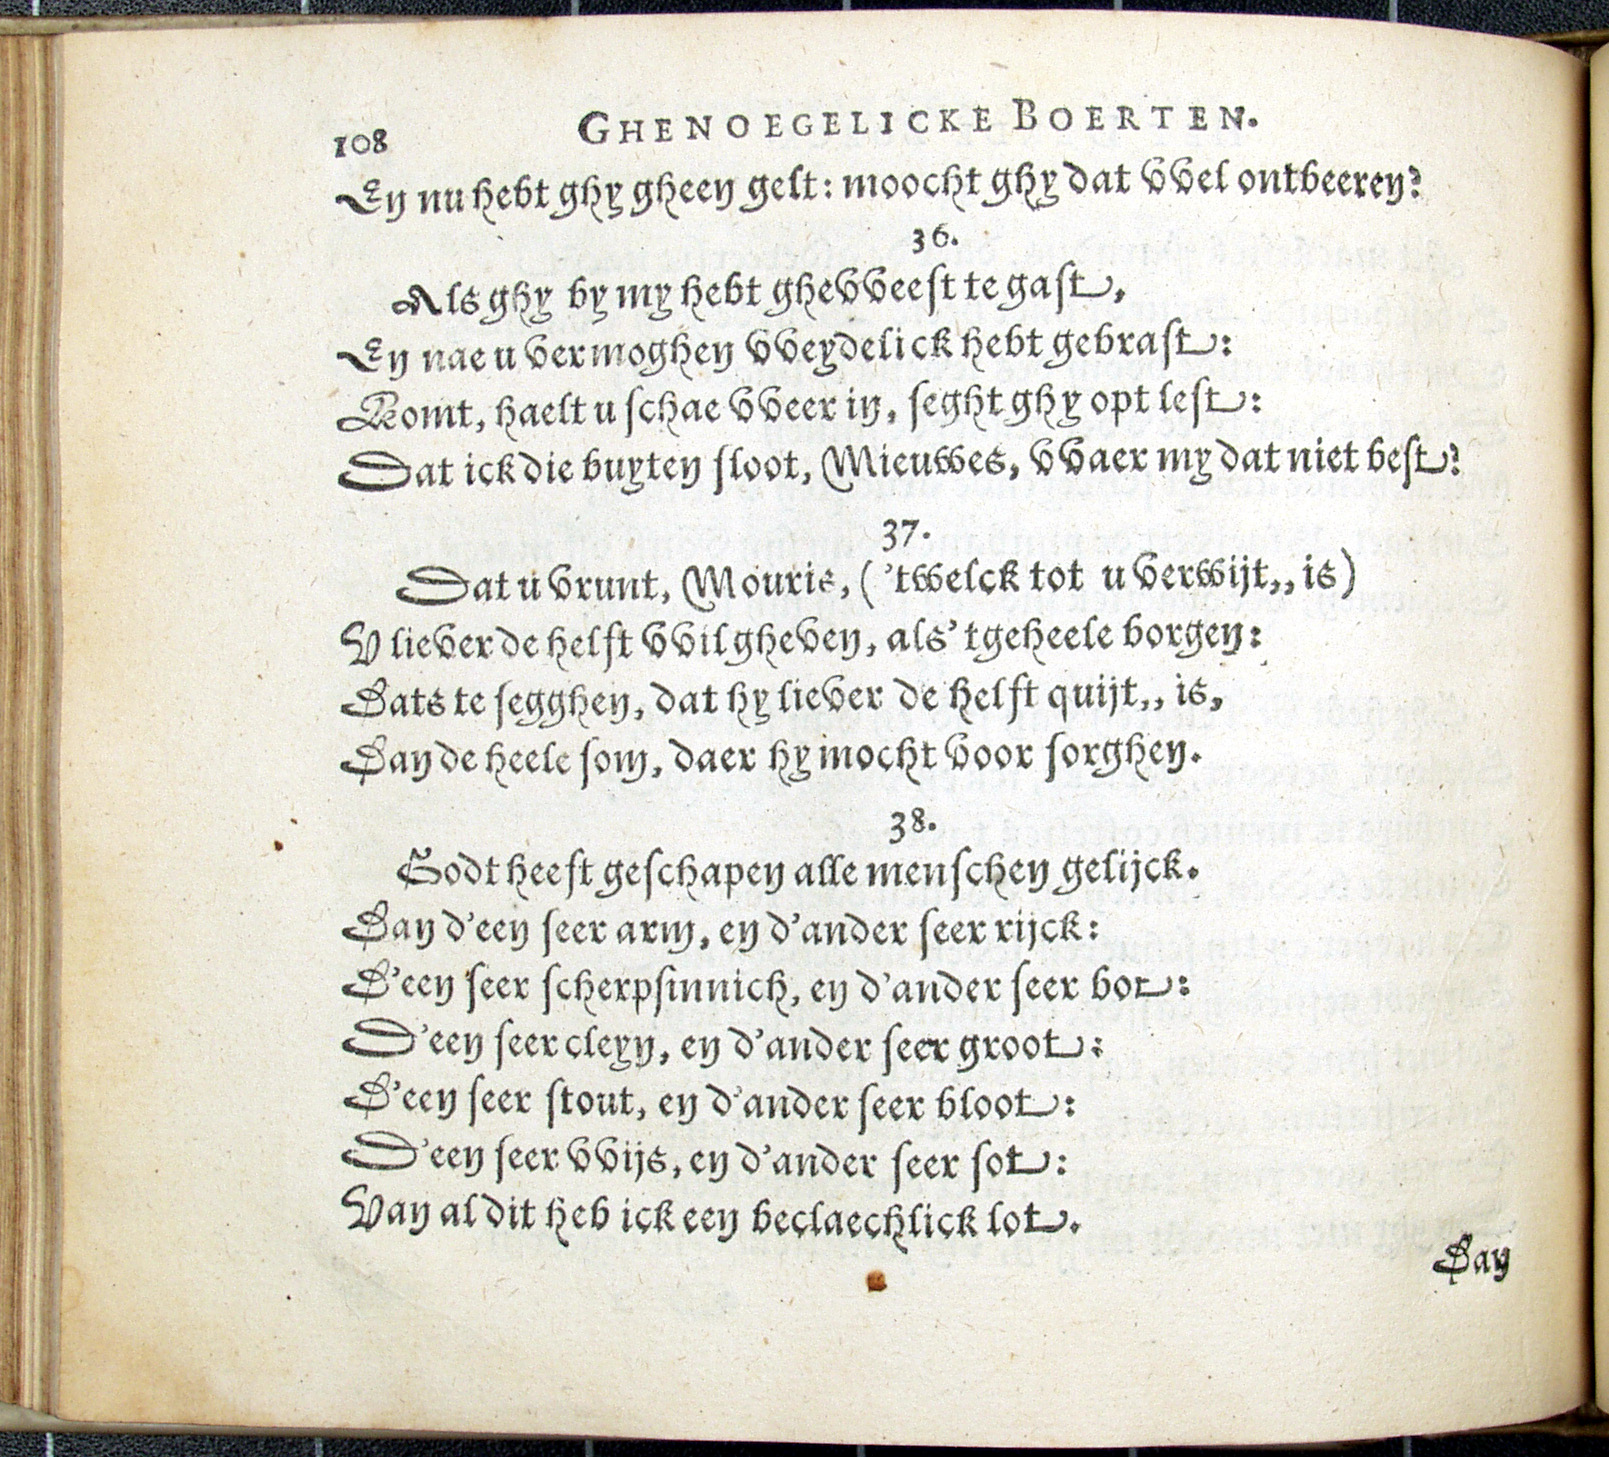 108 GHENOEGELICKE BOERTEN.
En nu hebt ghy gheen gelt: moocht ghy dat vvel ontbeeren?
36.
Als ghy by my hebt ghevveest te gast,
En nae u vermoghen vveydelick hebt gebrast:
Komt, haelt u schae vveer in, seght ghy opt lest:
Dat ick die buyten sloot, Mieuwes, vvaer my dat niet best?
37.
Dat u vrunt, Mouris, ('twelck tot u verwijt,, is)
V liever de helft vvil gheven, als 't geheele borgen:
Dats te segghen, dat hy liever de helft quijt,, is,
Dan de heele som, daer hy mocht voor sorghen.
38.
Godt heeft geschapen alle menschen gelijck.
Dan d'een seer arm, en d'ander seer rijck:
D'een seer scherpsinnich, en d'ander seer bot:
D'een seer cleyn, en d'ander seer groot:
D'een seer stout, en d'ander seer bloot:
D'een seer vvijs, en d'ander seer sot:
Van al dit heb ick een beclaechlick lot.
Dan